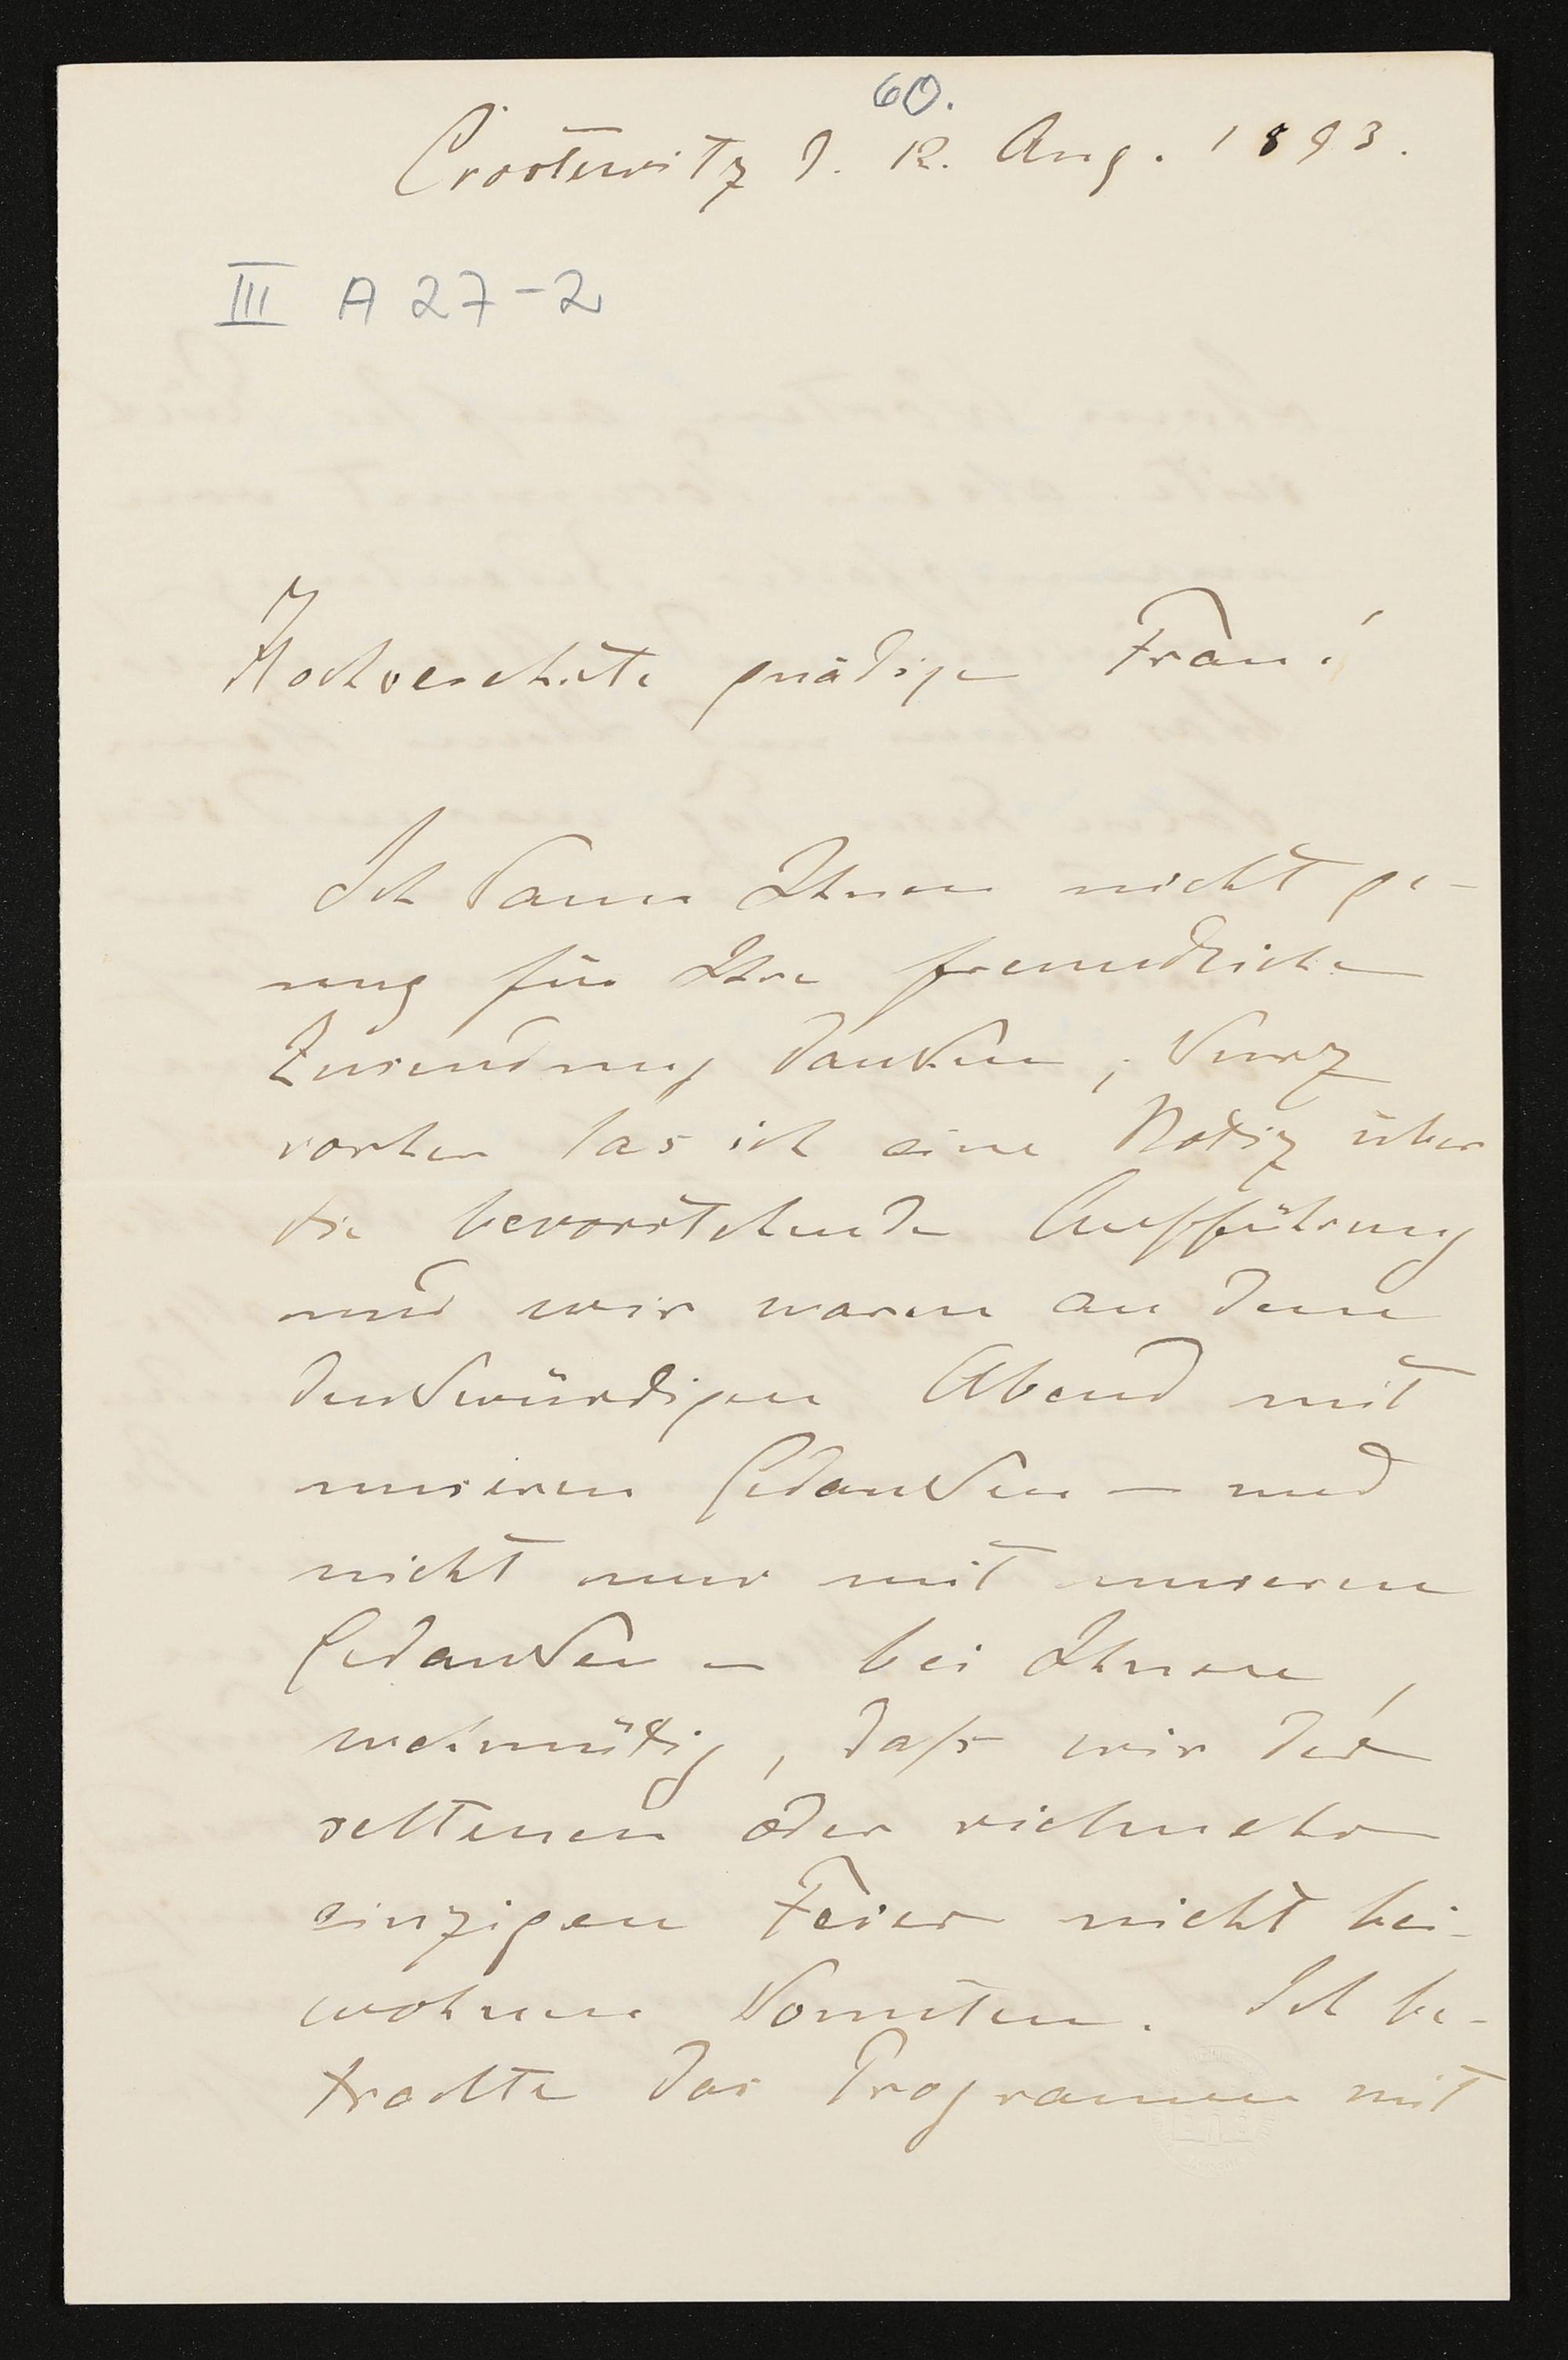 60.
Crostewitz d. 12. Aug. 1893.
III A 27-2
Hochverehrte gnädige Frau!
Ich kann Ihnen nicht ge-
nug für Ihre freundliche
Zusendung danken; kurz
vorher las ich eine Notiz über
die bevorstehende Aufführung
und wir waren an dem
denkwürdigen Abend mit
unseren Gedanken – und
nicht nur mit unseren
Gedanken – bei Ihnen,
wehmütig, dass wir der
seltenen oder vielmehr
einzigen Feier nicht bei-
wohnen konnten. Ich be-
trachte das Programm mit